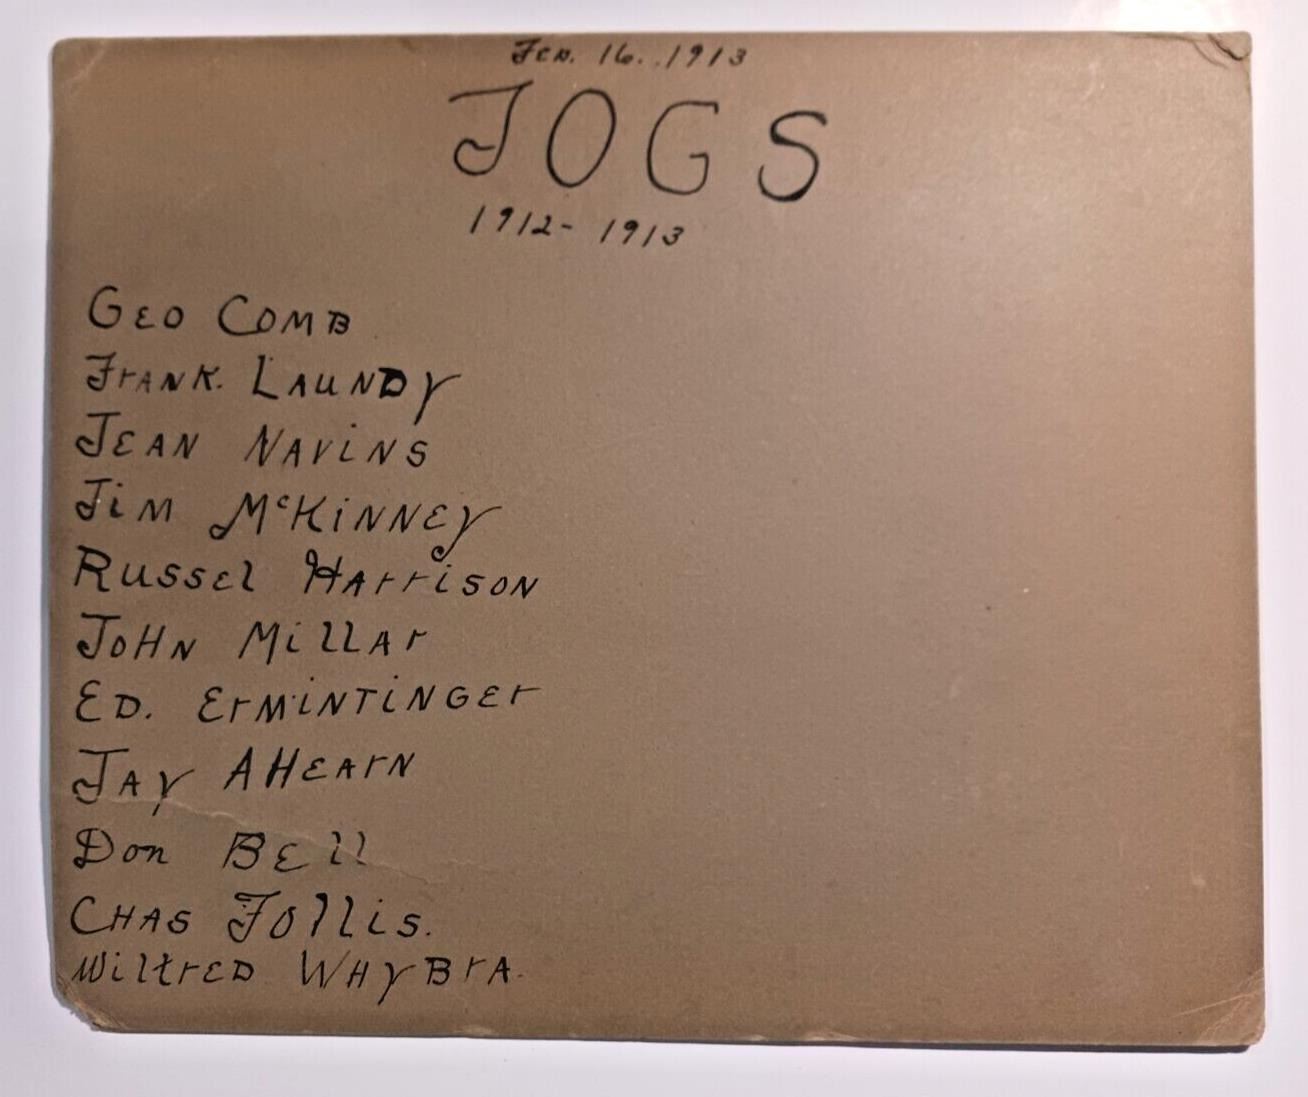 FEB. 16. 1913
JOGS
1912-1913
GEO COMB
FrANK. LAUNDY
JEAN NAViNS
JiM McKiNNEY
RussEl HArriSON
JOHN MillAr
ED. ErMiNTiNGEr
JAY AHEArN
Don BEll
CHAS FOlliS.
WilfrED WHYBrA.